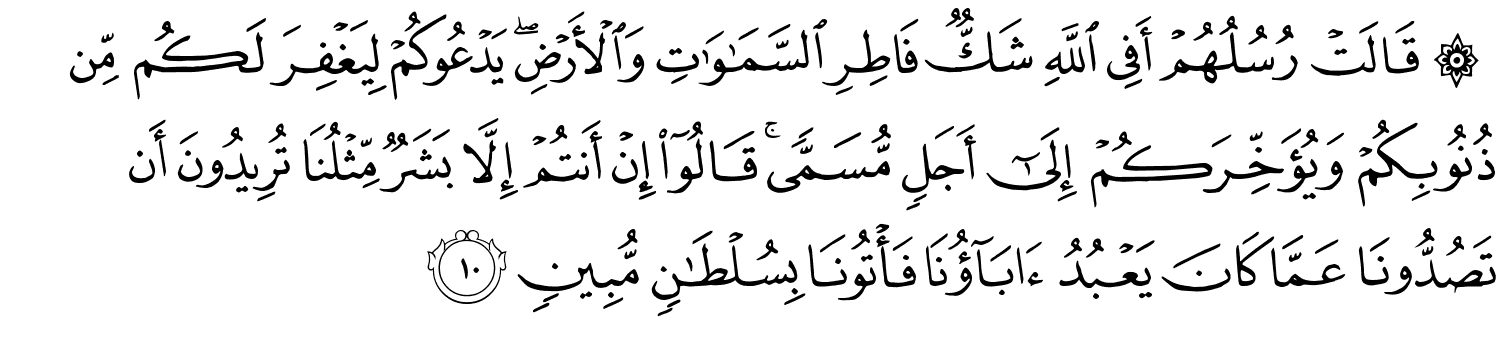 ۞ قَالَتۡ رُسُلُهُمۡ أَفِي ٱللَّهِ شَكّٞ فَاطِرِ ٱلسَّمَٰوَٰتِ وَٱلۡأَرۡضِۖ يَدۡعُوكُمۡ لِيَغۡفِرَ لَكُم مِّن
ذُنُوبِكُمۡ وَيُؤَخِّرَكُمۡ إِلَىٰٓ أَجَلٖ مُّسَمّٗىۚ قَالُوٓاْ إِنۡ أَنتُمۡ إِلَّا بَشَرٞ مِّثۡلُنَا تُرِيدُونَ أَن
تَصُدُّونَا عَمَّا كَانَ يَعۡبُدُ ءَابَآؤُنَا فَأۡتُونَا بِسُلۡطَٰنٖ مُّبِينٖ ١٠